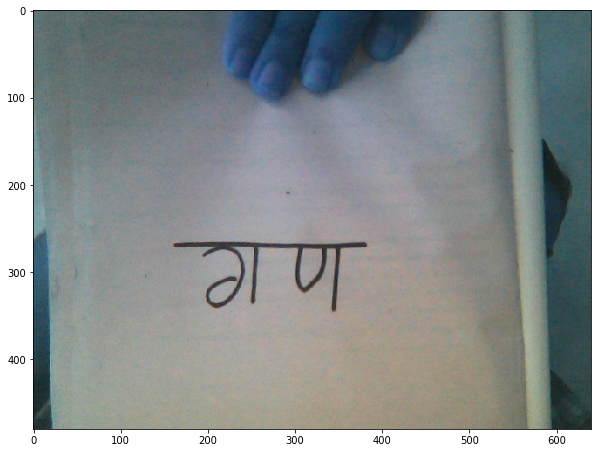 0
100
200
300 गण
400
0 100 200 300 400 500 600